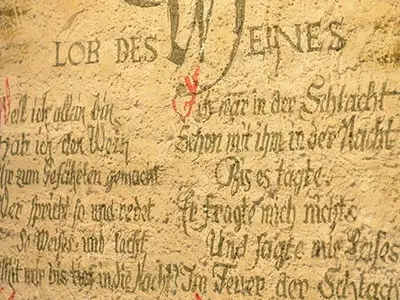 LOB DES WEINES
Weil ich allein bin
Hab ich den Wein
Mir zum Gefährten gemacht
Der spricht so und redet
So Weises und lacht
mir bis tief in die Nacht?
Ich war in der Schlacht
Schon mit ihm in der Nacht
Bis es tagte.
Er fragte mich nichts
Und sagte mir Leises
Im Feuer der Schlacht